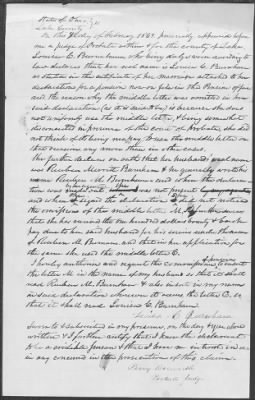 Lake County
On this day of February 1865 personally appeared before
me a judge of Probate within & for the county of Lake
Louisa C. Burnham who being duly sworn according to
law declares that her real name is Louisa C. Burnham
as stated in the certificate of her marriage attached to her
declaration for a pension now on file in the Pension office
and the reason why the middle letter was omitted in her
said declaration is because she does
not uniformly use the middle letter, & being somewhat
in presence of this court of Probate, she did
not think of it being necessary to use the middle letter on
that occasion any more than in other cases.
She further declares on oath that her husband's real name
was Reuben M. Burnham & he generally wrote his
name Reuben M. Burnham and when the declaration
was was not present
and when I signed the declaration I did not notice
the omission of the middle letter M.
that she has received the one hundred dollars bounty & back
pay due to her said husband for his services
of Reuben M. Burnham and that in her application for
the same she used the middle letter C.
I hereby authorize and request the commissioner of pensions to insert
the letter M in the name of my husband so that it shall
read Reuben M. Burnham & also insert in my name
in such declaration wherever it occurs the letter C. so
that it shall read Louisa C. Burnham
Louisa C Burnham
Sworn to & subscribed in my presence, on the day & year above
written & I further certify that I know the declarant
to be a credible person & that I have no interest
in any concerned in the prosecution of this claim.
Perry
Probate Judge